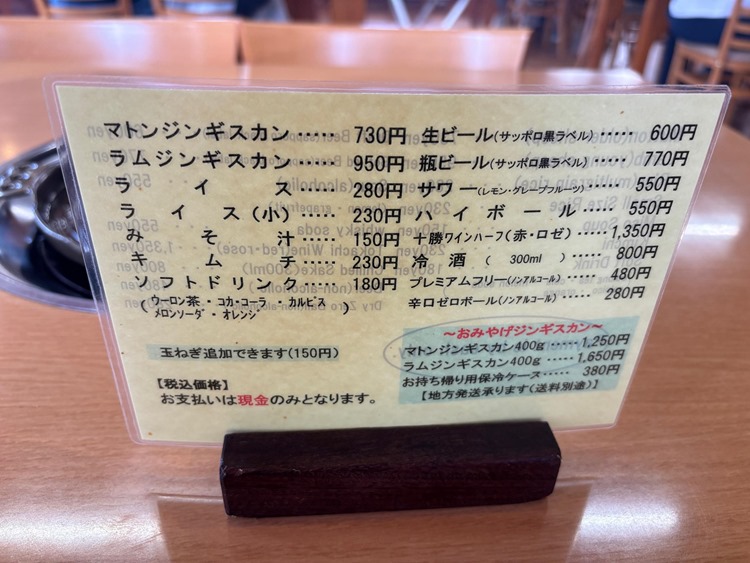 マトンジンギスカン ····· 730円
ラムジンギスカン ····· 950円
ライス ····· 280円
ライス(小) ····· 230円
みそ汁 ····· 150円
キムチ ····· 230円
ソフトドリンク ····· 180円
(ウーロン茶・コカ・コーラ・カルピス
メロンソーダ・オレンジ)
玉ねぎ追加できます(150円)
【税込価格】
お支払いは現金のみとなります。
生ビール(サッポロ黒ラベル) ····· 600円
瓶ビール(サッポロ黒ラベル) ····· 770円
サワー(レモン・グレープフルーツ) ····· 550円
ハイボール ····· 550円
十勝ワインハーフ(赤・ロゼ) ···· 1,350円
冷酒(300ml) ····· 800円
プレミアムフリー(ノンアルコール) ····· 480円
辛口ゼロボール(ノンアルコール) ····· 280円
~おみやげジンギスカン~
マトンジンギスカン400g ····· 1,250円
ラムジンギスカン400g ····· 1,650円
お持ち帰り用保冷ケース ····· 380円
【地方発送承ります(送料別途)】